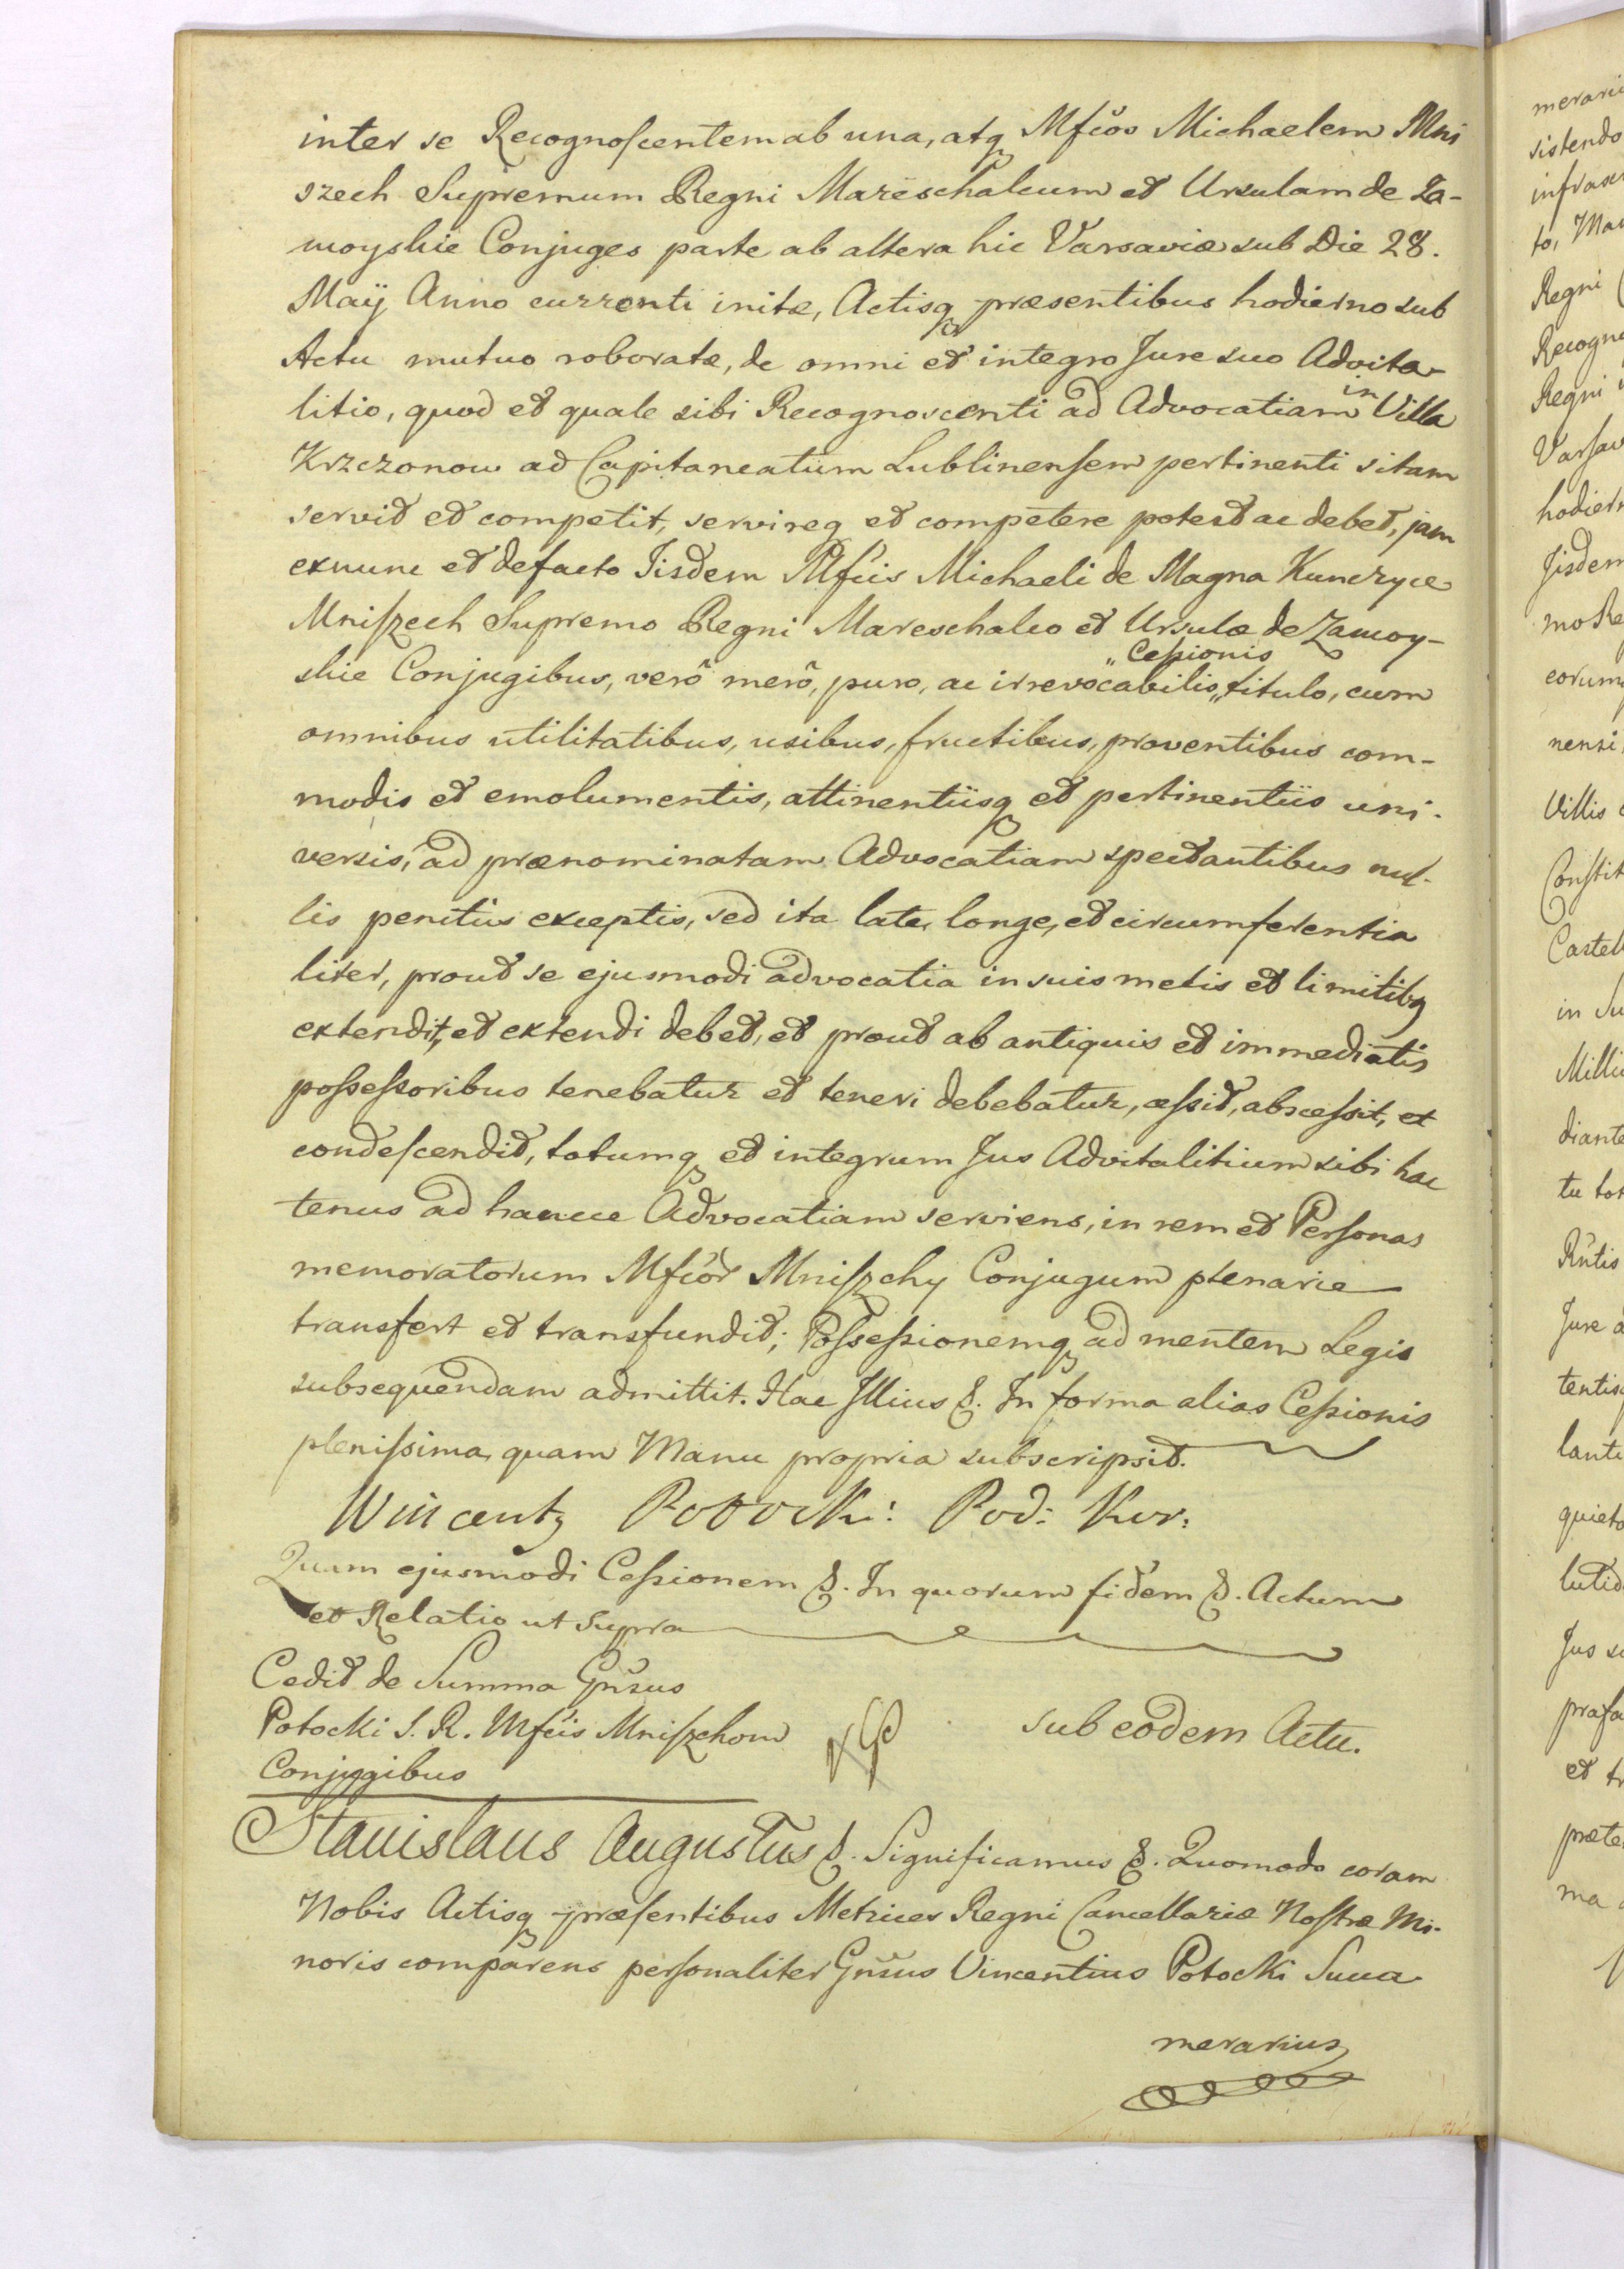 inter se Recognoscentem ab una, atq Mfcos Michaelem Mni
szech Supremum Regni Mareschalcum et Ursulam de Za-
moyskie Conjuges parte ab altera hic Varsaviæ sub Die 28.
Maÿ Anno currenti initæ, Actisq præsentibus hodierno sub
Actu mutuo roboratæ, de omni et integro Jure suo Advita-
litio, quod et quale sibi Recognoscenti ad Advocatiam in Villa
Krzczonow ad Capitaneatum Lublinensem pertinenti sitam
servit et competit, servireq et competere potest ac debet, jam
exnunc et defacto Iisdem Mfcis Michaeli de Magna Kunczyce
Mniszech Supremo Regni Mareschalco et Ursulæ de Zamoy-
skie Conjugibus, verô merô, puro, ac irrevocabilis „Cessionis„ titulo, cum
omnibus utilitatibus, usibus, fructibus, proventibus com-
modis et emolumentis, attinentiisq et pertinentiis uni-
versis, ad prænominatam Advocatiam spectantibus nul-
lis penitus exceptis, sed ita late, longe, et circumferentia
liter, prout se ejusmodi advocatia in suis metis et limitibq
extendit, et extendi debet, et prout ab antiquis et immediatis
possessoribus tenebatur et teneri debebatur, cessit, abscessit, et
condescendit, totumq et integrum Jus Advitalitium sibi hac
tenus ad hancce Advocatiam serviens, in rem et Personas
memoratorum Mfcor Mniszchy Conjugum plenarie
transfert et transfundit; Possessionemq ad mentem Legis
subsequendam admittit. Hac Illius &. In forma alias Cessionis
plenissima, quam Manu propria subscripsit.
Wincenty Potocki: Pod: Kor:
Quam ejusmodi Cessionem &. In quorum fidem &. Actum
et Relatio ut supra
Cedit de Summa Gnsus
Potocki S. R. Mfcis Mniszchom
Conjugibus
sub eodem Actu.
Stanislaus Augustus &. Significamus &. Quomodo coram
Nobis Actisq præsentibus Metrices Regni Cancellariæ Nostræ Mi-
noris comparens personaliter Gnsus Vincentius Potocki Succa
merarius